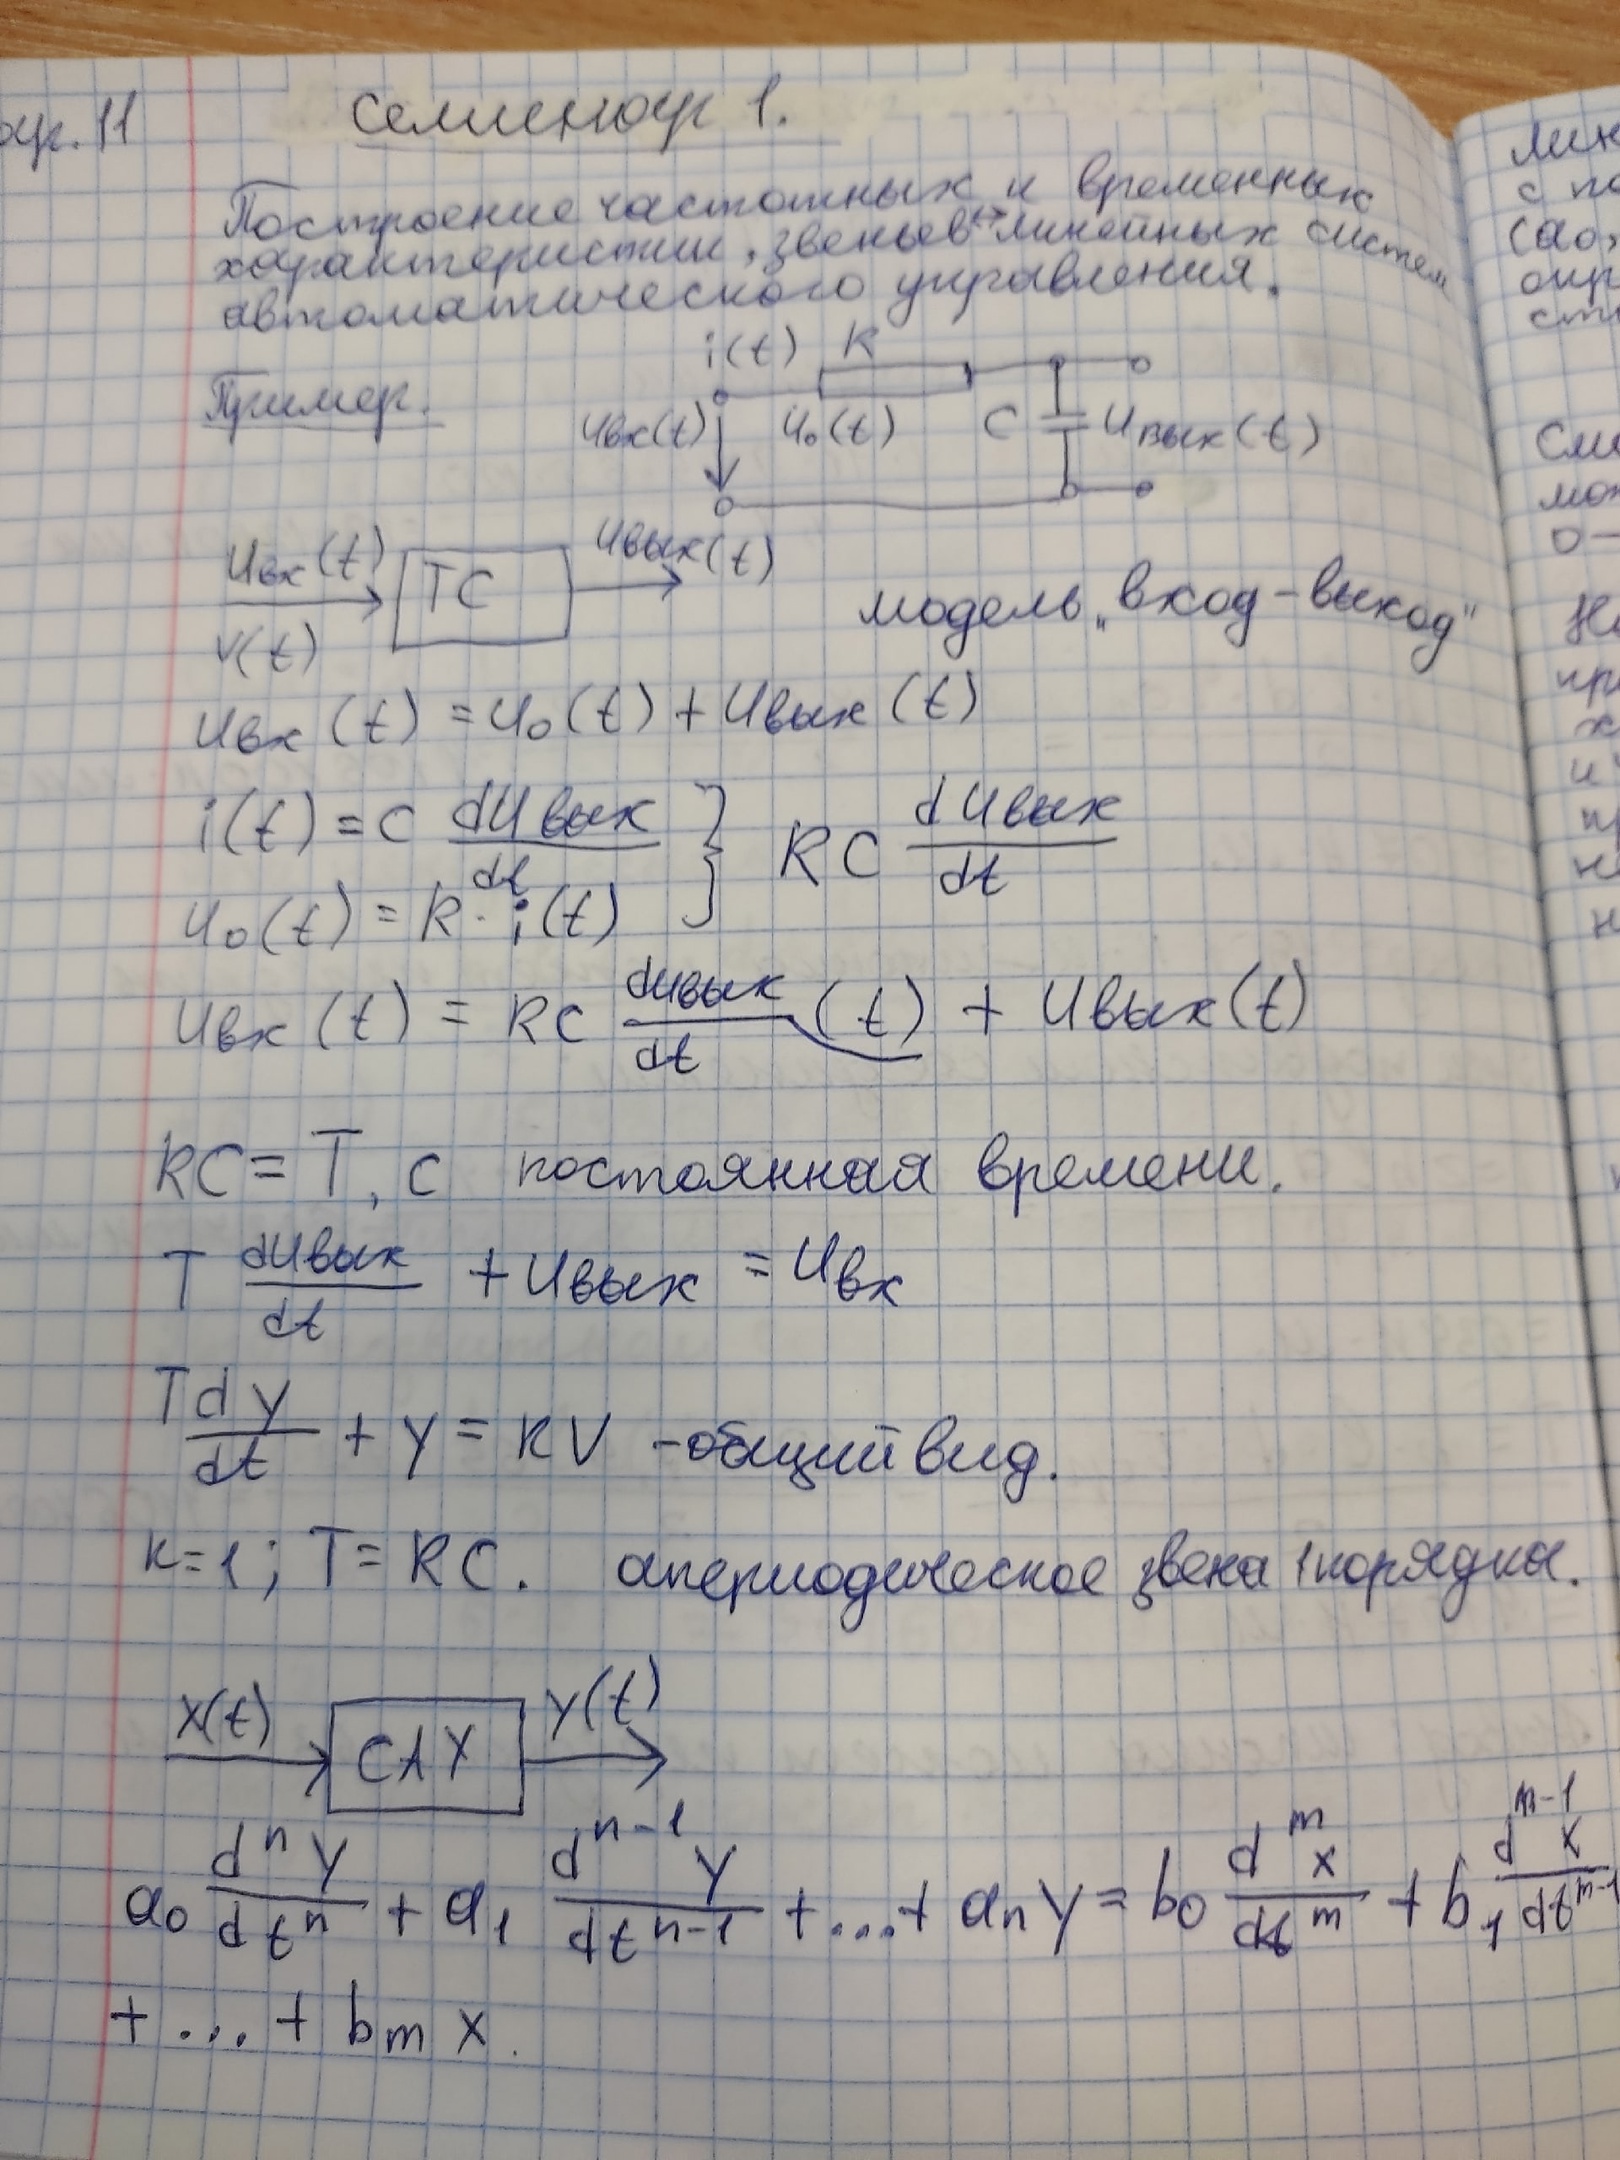 Семиенар 1.
Построение частотных и временных
характеристик, звеньев линейных систем
автоматического управления.
Пример.
i(t) R
Uвх(t) U₀(t) C Uвых(t)
Uвх(t) TC Uвых(t)
V(t)
модель „вход-выход"
Uвх(t) = U₀(t) + Uвых(t)
i(t) = C dUвых/dt } RC dUвых/dt
U₀(t) = R · i(t)
Uвх(t) = RC dUвых/dt (t) + Uвых(t)
RC = T, с постоянная времени.
T dUвых/dt + Uвых = Uвх
T dy/dt + y = KV - общий вид.
K=1; T = RC. апериодическое звена 1 порядка.
X(t) САУ Y(t)
a₀ dⁿy/dtⁿ + a₁ dⁿ⁻¹y/dtⁿ⁻¹ + ... + aₙy = b₀ dᵐx/dtᵐ + b₁ dᵐ⁻¹x/dtᵐ⁻¹
+ ... + bₘ x.